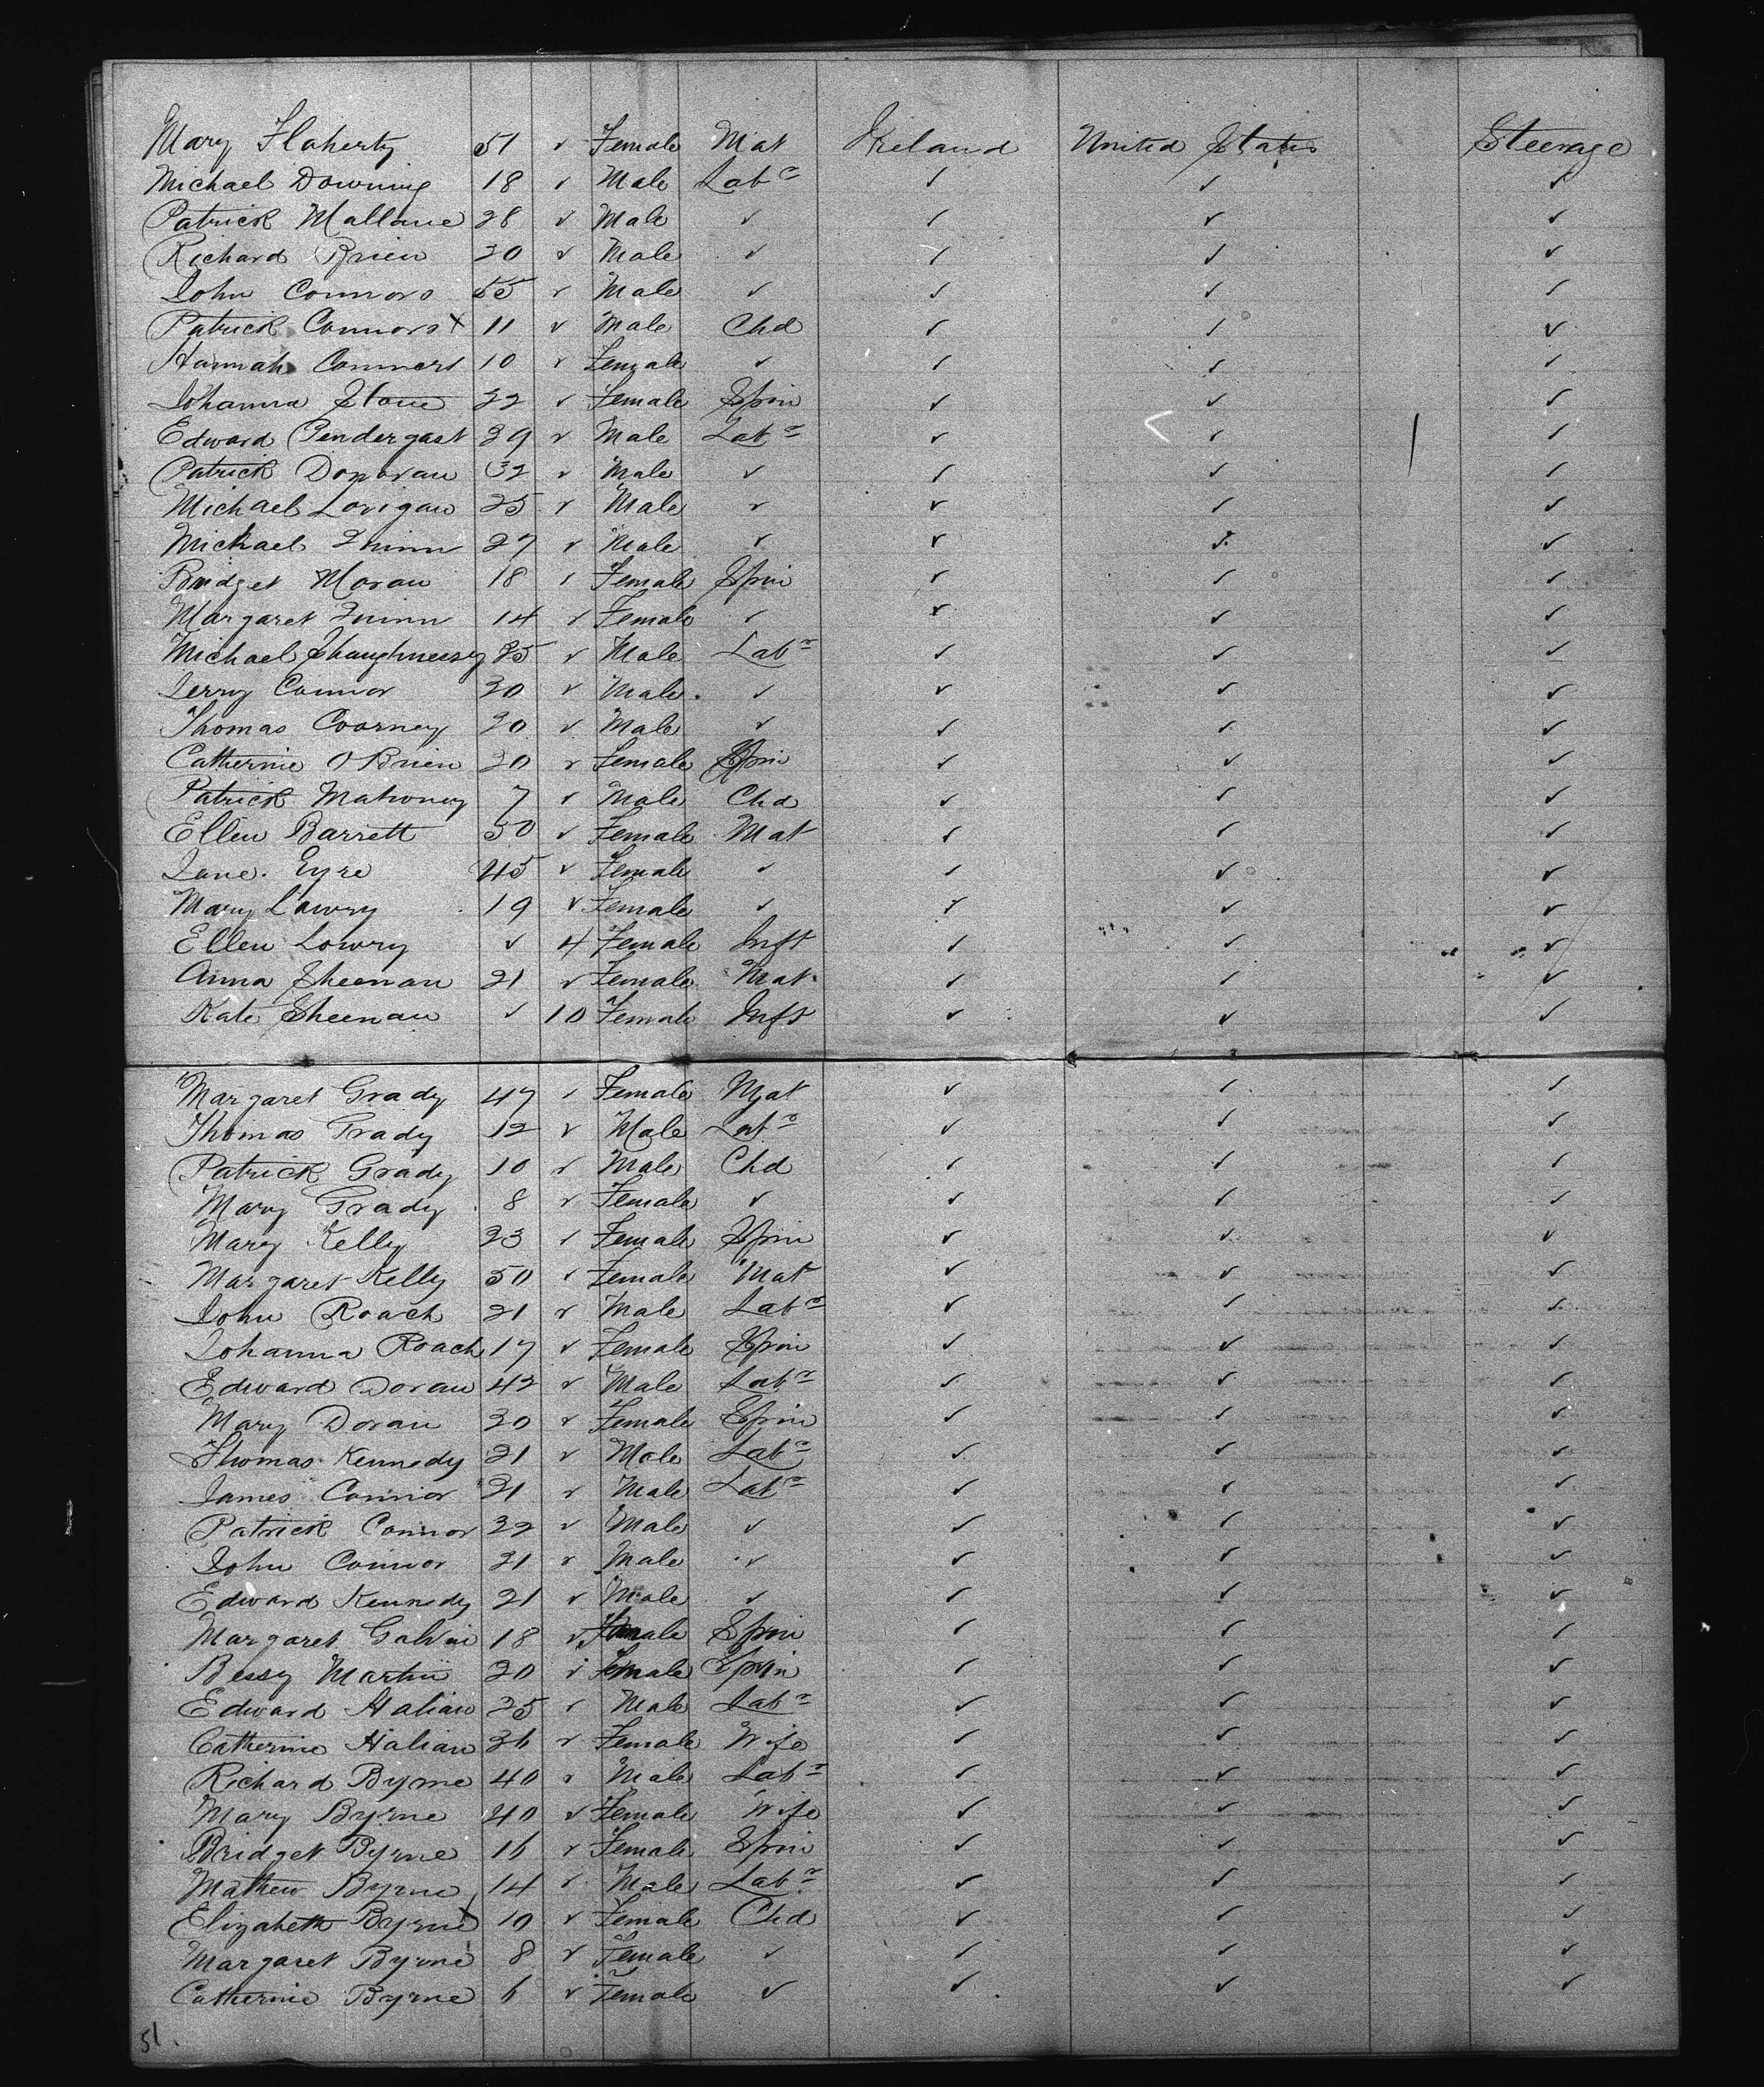 Mary Flaherty 51 ✓ Female Mat Ireland United States Steerage
Michael Downing 18 ✓ Male Labr ✓ ✓ ✓
Patrick Mallane 28 ✓ Male ✓ ✓ ✓ ✓
Richard Brien 20 ✓ Male ✓ ✓ ✓ ✓
John Connors 55 ✓ Male ✓ ✓ ✓ ✓
Patrick Connors X 11 ✓ Male Chd ✓ ✓ ✓
Hannah Conners 10 ✓ Female ✓ ✓ ✓ ✓
Johanna Stone 22 ✓ Female Spin ✓ ✓ ✓
Edward Pendergast 39 ✓ Male Labr ✓ ✓ ✓
Patrick Donovan 32 ✓ Male ✓ ✓ ✓ ✓
Michael Lorigan 25 ✓ Male ✓ ✓ ✓ ✓
Michael Quinn 27 ✓ Male ✓ ✓ ✓ ✓
Bridget Moran 18 ✓ Female Spin ✓ ✓ ✓
Margaret Quinn 14 ✓ Female ✓ ✓ ✓ ✓
Michael Shaughnessy 25 ✓ Male Labr ✓ ✓ ✓
Jerry Connor 30 ✓ Male ✓ ✓ ✓ ✓
Thomas Coorney 20 ✓ Male ✓ ✓ ✓ ✓
Catherine O Brien 20 ✓ Female Spin ✓ ✓ ✓
Patrick Mahoney 7 ✓ Male Chd ✓ ✓ ✓
Ellen Barrett 50 ✓ Female Mat ✓ ✓ ✓
Jane Eyre 45 ✓ Female ✓ ✓ ✓ ✓
Mary Lowry 19 ✓ Female ✓ ✓ ✓ ✓
Ellen Lowry ✓ 4 Female Inft ✓ ✓ ✓
Anna Sheenan 21 ✓ Female Mat ✓ ✓ ✓
Kate Sheenan ✓ 10 Female Inft ✓ ✓ ✓
Margaret Grady 47 ✓ Female Mat ✓ ✓ ✓
Thomas Grady 12 ✓ Male Labr ✓ ✓ ✓
Patrick Grady 10 ✓ Male Chd ✓ ✓ ✓
Mary Grady 8 ✓ Female ✓ ✓ ✓ ✓
Mary Kelly 23 ✓ Female Spin ✓ ✓ ✓
Margaret Kelly 50 ✓ Female Mat ✓ ✓ ✓
John Roach 21 ✓ Male Labr ✓ ✓ ✓
Johanna Roach 17 ✓ Female Spin ✓ ✓ ✓
Edward Doran 42 ✓ Male Labr ✓ ✓ ✓
Mary Doran 30 ✓ Female Spin ✓ ✓ ✓
Thomas Kennedy 21 ✓ Male Labr ✓ ✓ ✓
James Connor 21 ✓ Male Labr ✓ ✓ ✓
Patrick Connor 32 ✓ Male ✓ ✓ ✓ ✓
John Connor 21 ✓ Male ✓ ✓ ✓ ✓
Edward Kennedy 21 ✓ Male ✓ ✓ ✓ ✓
Margaret Galvin 18 ✓ Female Spin ✓ ✓ ✓
Bessy Martin 20 ✓ Female Spin ✓ ✓ ✓
Edward Halian 35 ✓ Male Labr ✓ ✓ ✓
Catherine Halian 36 ✓ Female Wife ✓ ✓ ✓
Richard Byrne 40 ✓ Male Labr ✓ ✓ ✓
Mary Byrne 40 ✓ Female Wife ✓ ✓ ✓
Bridget Byrne 16 ✓ Female Spin ✓ ✓ ✓
Mathew Byrne 14 ✓ Male Labr ✓ ✓ ✓
Elizabeth Byrne X 10 ✓ Female Chd ✓ ✓ ✓
Margaret Byrne 8 ✓ Female ✓ ✓ ✓ ✓
Catherine Byrne 6 ✓ Female ✓ ✓ ✓ ✓
51.